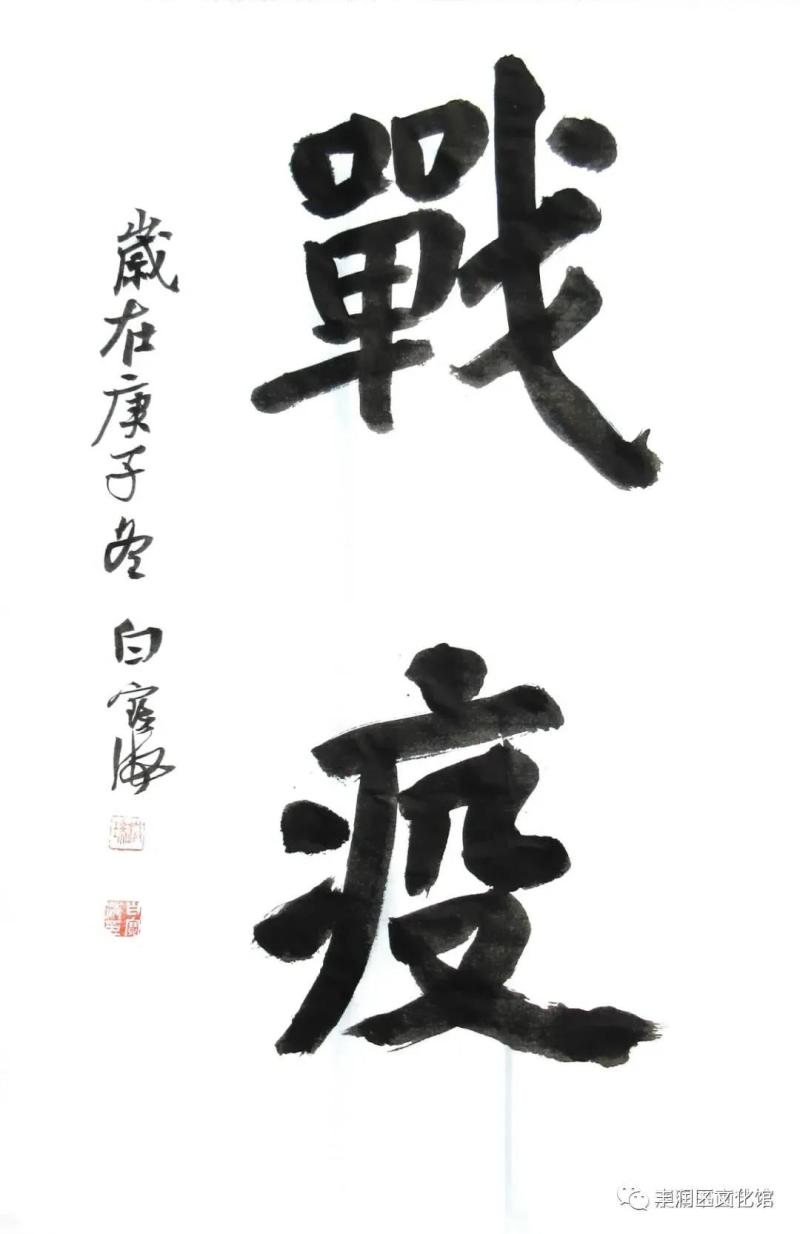 戰疫
歲在庚子冬 白寶海
丰润区文化馆